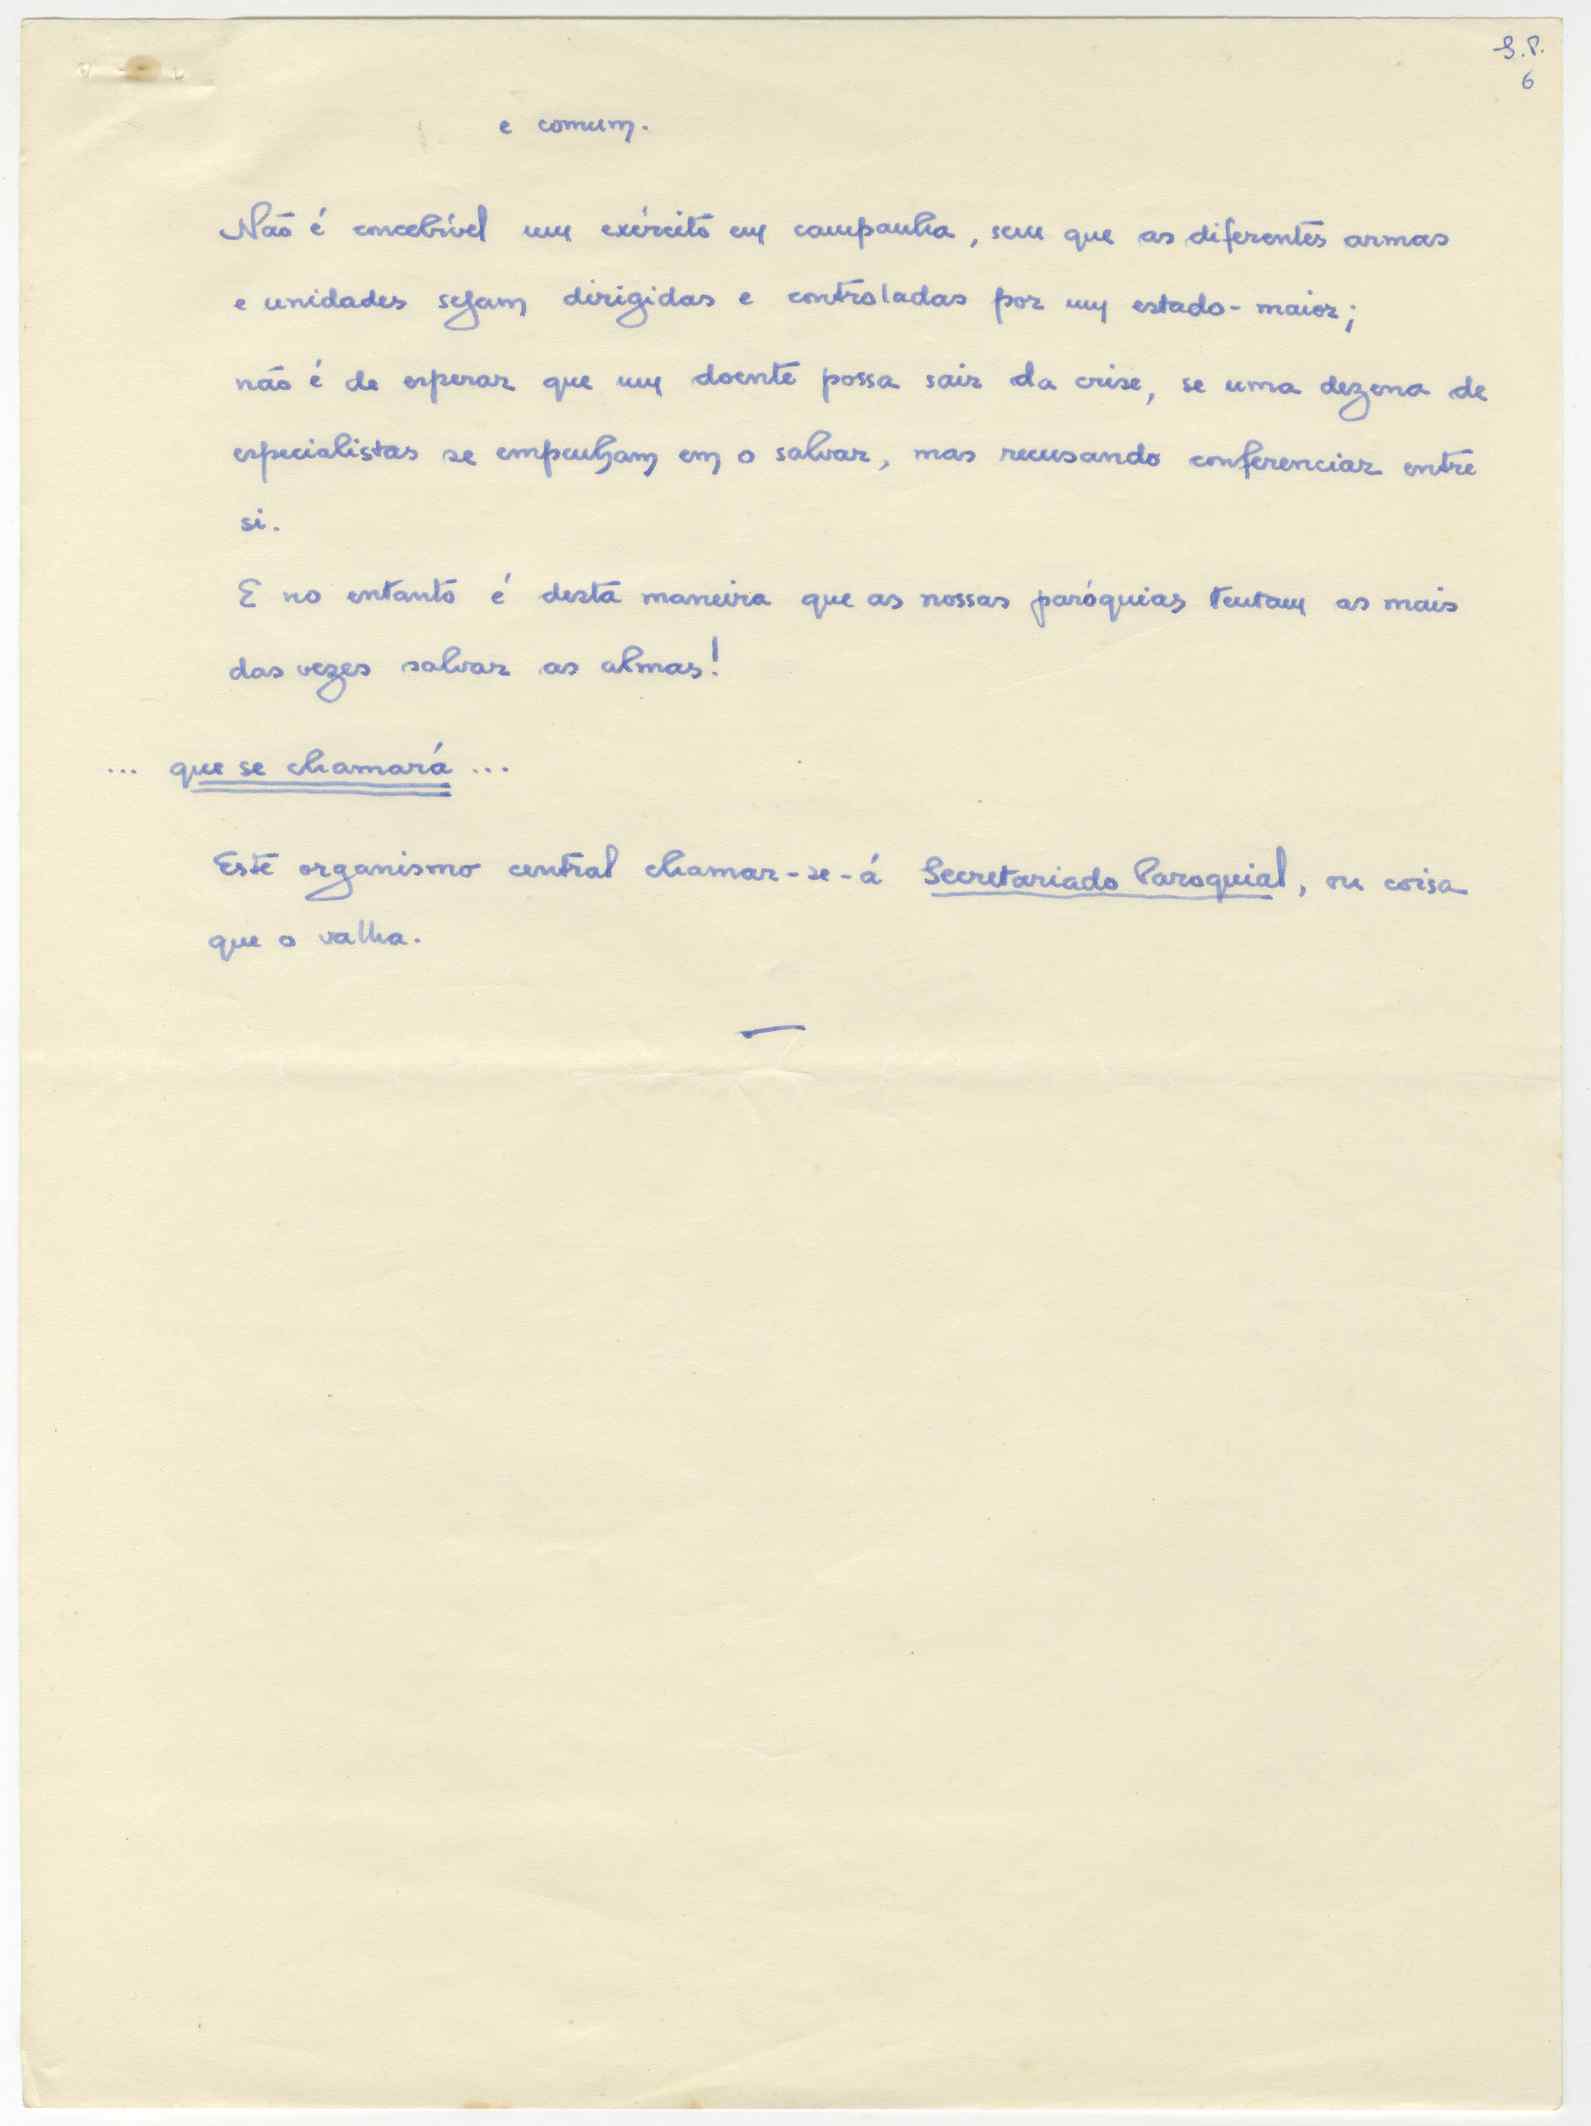 S.P.
6
e comum.
Não é concebível um exército em campanha, sem que as diferentes armas
e unidades sejam dirigidas e controladas por um estado-maior;
não é de esperar que um doente possa sair da crise, se uma dezena de
especialistas se empenham em o salvar, mas recusando conferenciar entre
si.
E no entanto é desta maneira que as nossas paróquias tentam as mais
das vezes salvar as almas!
... que se chamará ...
Este organismo central chamar-se-á Secretariado Paroquial, ou coisa
que o valha.